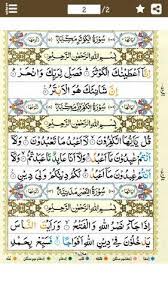 2 / 2
سُوْرَةُ الْكَوْثَرِ مَكِّيَّةٌ
بِسْمِ اللّٰهِ الرَّحْمٰنِ الرَّحِيْمِ
اِنَّاۤ اَعْطَيْنٰكَ الْكَوْثَرَ فَصَلِّ لِرَبِّكَ وَانْحَرْ
اِنَّ شَانِئَكَ هُوَ الْاَبْتَرُ
سُوْرَةُ الْكٰفِرُوْنَ مَكِّيَّةٌ
بِسْمِ اللّٰهِ الرَّحْمٰنِ الرَّحِيْمِ
قُلْ يٰۤاَيُّهَا الْكٰفِرُوْنَ لَاۤ اَعْبُدُ مَا تَعْبُدُوْنَ وَلَاۤ
اَنْتُمْ عٰبِدُوْنَ مَاۤ اَعْبُدُ وَلَاۤ اَنَا عَابِدٌ مَّا عَبَدْتُّمْ وَلَاۤ
اَنْتُمْ عٰبِدُوْنَ مَاۤ اَعْبُدُ لَكُمْ دِيْنُكُمْ وَلِيَ دِيْنِ
سُوْرَةُ النَّصْرِ مَدَنِيَّةٌ
بِسْمِ اللّٰهِ الرَّحْمٰنِ الرَّحِيْمِ
اِذَا جَآءَ نَصْرُ اللّٰهِ وَالْفَتْحُ وَرَاَيْتَ النَّاسَ
يَدْخُلُوْنَ فِيْ دِيْنِ اللّٰهِ اَفْوَاجًا فَسَبِّحْ بِحَمْدِ